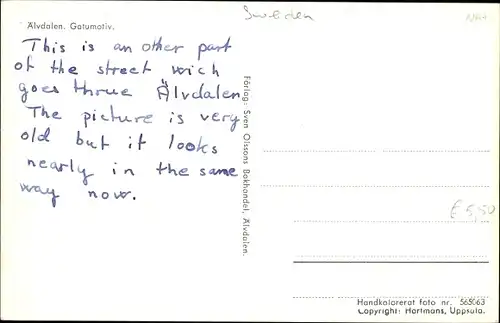 Älvdalen. Gatumotiv.
Sweden
This is an other part
of the street wich
goes thrue Älvdalen
The picture is very
old but it looks
nearly in the same
way now.
Förlag: Sven Olssons Bokhandel, Älvdalen.
£ 5,50
Handkolorerat foto nr. 565063
Copyright: Hartmans, Uppsala.